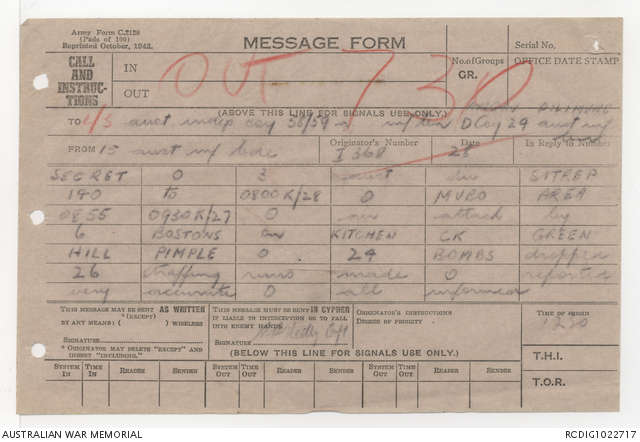 Army Form C.2128
(Pads of 100)
Reprinted October, 1942.
MESSAGE FORM
Serial No.
CALL AND INSTRUCTIONS
IN
OUT
OUT 730
No. of Groups
GR.
OFFICE DATE STAMP
(ABOVE THIS LINE FOR SIGNALS USE ONLY.)
TO 2/3 aust indep coy 58/59 aust inf bn D Coy 24 aust inf
FROM 15 aust inf bde
Originator's Number
I 368
Date
28
In Reply to Number
SECRET 0 3 aust div SITREP
190 to 0800K/28 0 MUBO AREA
0855 0930K/27 0 air attack by
6 BOSTONS on KITCHEN CK GREEN
HILL PIMPLE 0 24 BOMBS dropped
26 strafing runs made 0 reported
very accurate 0 all informed
THIS MESSAGE MAY BE SENT AS WRITTEN
(EXCEPT)
BY ANY MEANS ( ) WIRELESS
SIGNATURE
* ORIGINATOR MAY DELETE "EXCEPT" AND INSERT "INCLUDING."
THIS MESSAGE MUST BE SENT IN CYPHER
IF LIABLE TO INTERCEPTION OR TO FALL INTO ENEMY HANDS.
SIGNATURE Capt
ORIGINATOR'S INSTRUCTIONS
DEGREE OF PRIORITY
TIME OF ORIGIN
(BELOW THIS LINE FOR SIGNALS USE ONLY.)
SYSTEM IN TIME IN READER SENDER SYSTEM OUT TIME OUT READER SENDER SYSTEM OUT TIME OUT READER SENDER
T.H.I.
T.O.R.
AUSTRALIAN WAR MEMORIAL
RCDIG1022717